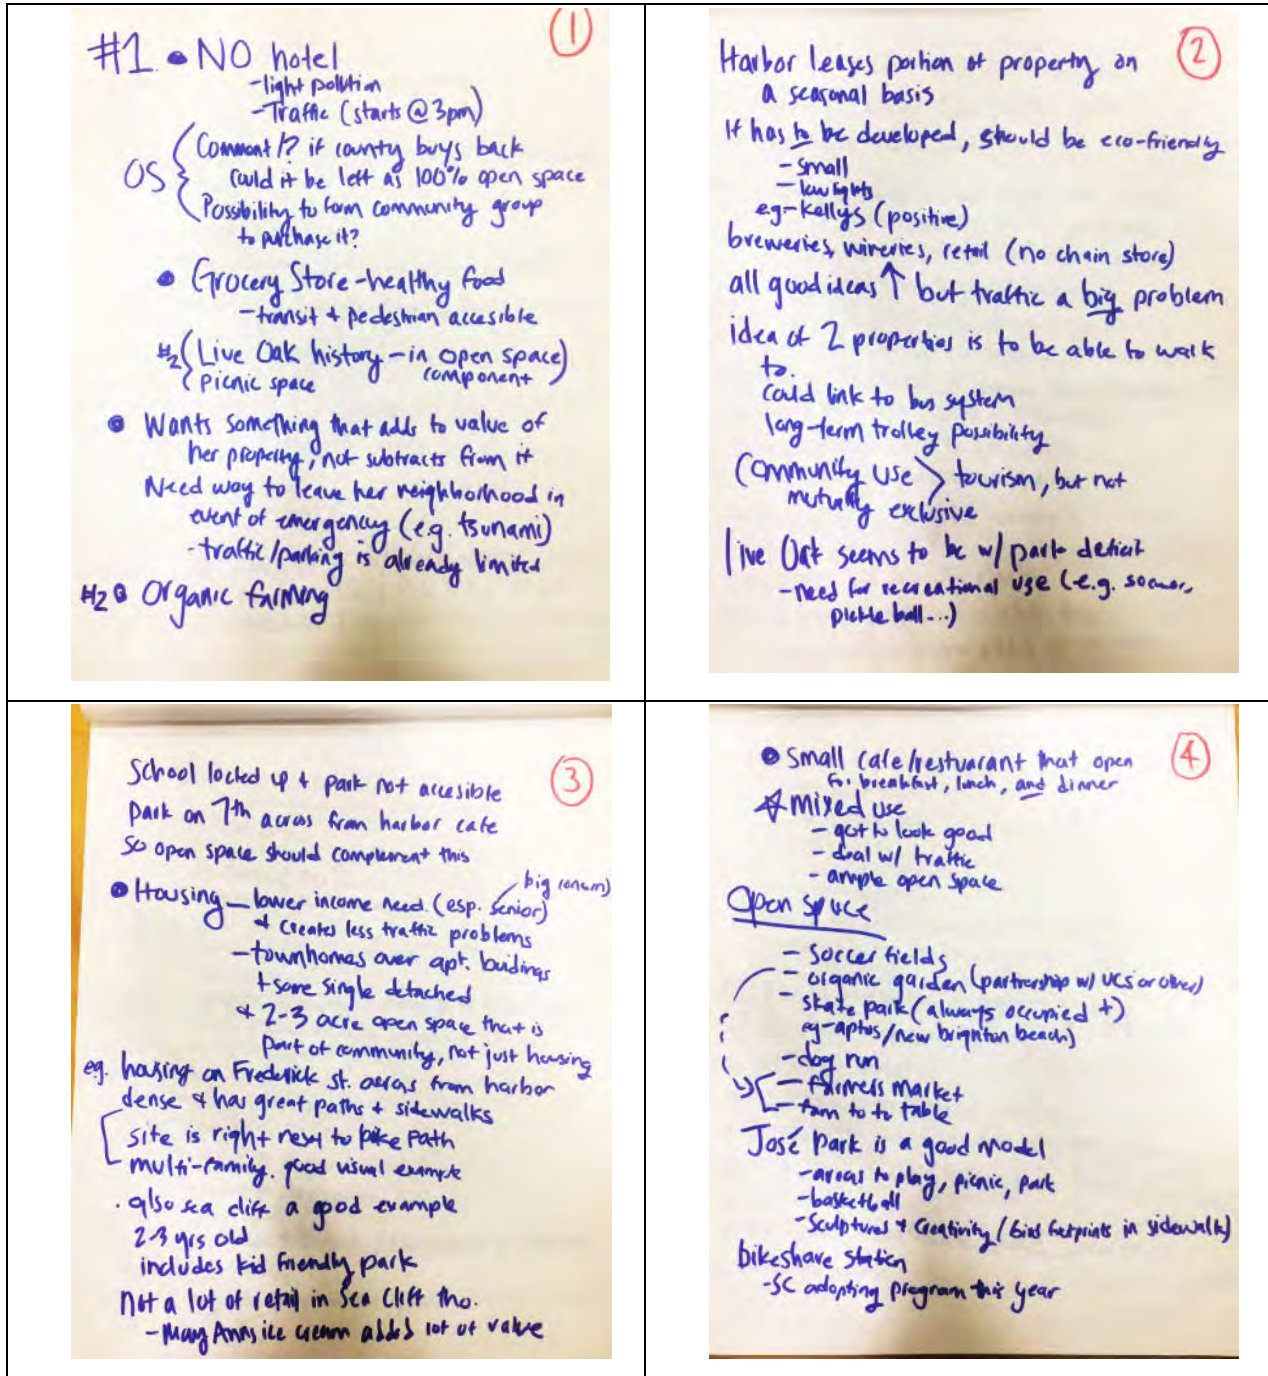 1
#1. • NO hotel
- light pollution
- Traffic (starts @ 3pm)
OS
Comment/? if county buys back
could it be left as 100% open space
Possibility to form community group
to purchase it?
• Grocery Store - healthy food
- transit + pedestrian accesible
#2
Live Oak history - in open space
component
picnic space
• Wants something that adds to value of
her property, not subtracts from it
Need way to leave her neighborhood in
event of emergency (e.g. tsunami)
- traffic/parking is already limited
#2 • Organic farming
2
Harbor leases portion of property on
a seasonal basis
If has to be developed, should be eco-friendly
- small
- low lights
e.g - Kellys (positive)
breweries, wineries, retail (no chain store)
all good ideas ↑ but traffic a big problem
idea of 2 properties is to be able to walk
to.
Could link to bus system
long-term trolley possibility
Community Use > tourism, but not
mutually exclusive
Live Oak seems to be w/ park deficit
- need for recreational use (e.g. soccer,
pickle ball...)
3
School locked up + park not accesible
Park on 7th across from harbor cafe
so open space should complement this
big concern
• Housing - lower income need (esp. senior)
+ creates less traffic problems
- townhomes over apt. buidings
+ some single detached
+ 2-3 acre open space that is
part of community, not just housing
eg. housing on Frederick st. across from harbor
dense + has great paths + sidewalks
site is right next to bike path
multi-family. good visual example
. also sea cliff a good example
2-3 yrs old
includes kid friendly park
Not a lot of retail in Sea Cliff tho.
- Mary Anns ice cream added lot of value
4
• Small cafe/restuarant that open
for breakfast, lunch, and dinner
☆ mixed use
- got to look good
- deal w/ traffic
- ample open space
Open space
- Soccer fields
- organic garden (partnership w/ UCS or other)
- skate park (always occupied +)
eg - aptos/new brighton beach)
- dog run
- farmers market
- farm to to table
José Park is a good model
- areas to play, picnic, park
- basketball
- Sculptures + Creativity (bird footprints in sidewalk)
bikeshare station
- SC adopting program this year